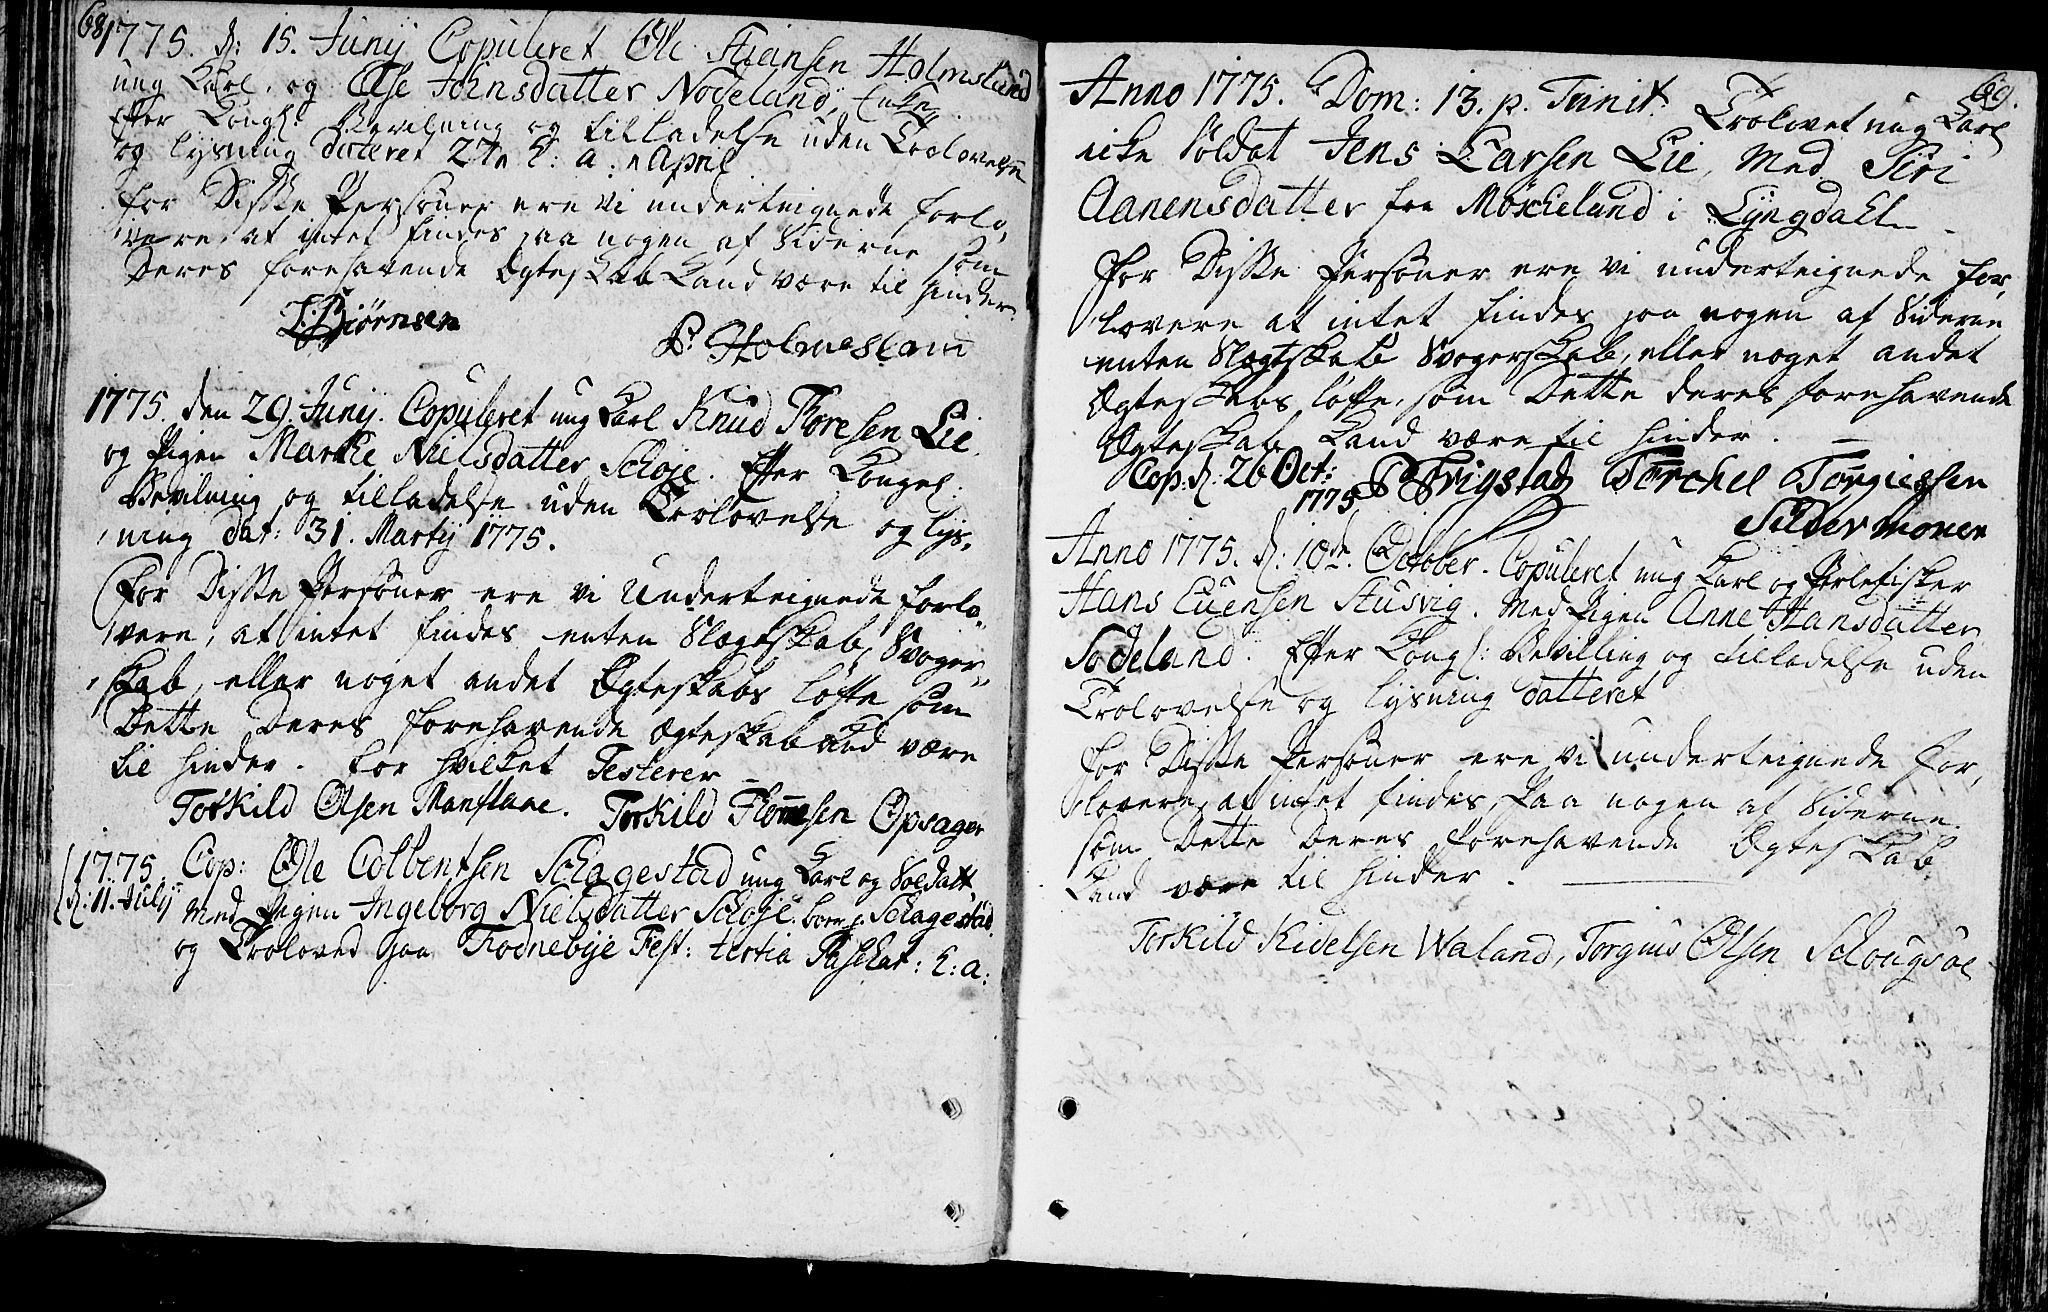 68.
1775. d: 15. Junij Copuleret Ole Staansen Holmslund
ung Karl, og Else Jornsdatter Nodeland, Enke,
Efter Kongl: Bevilning og tilladelse uden Troelovelse
og lysning dateret 27n h: a: April
For Disse Persohner ere vi underteignede forlo,
vere, at intet findes paa nogen af Siderne som
Deres forehavende Ægteskab Kand være til hinder.
T: Biörnsen
P: Holmesland
1775. den 29. Junij. Copuleret ung Karl Knud Toresen Lie.
og Pigen Marthe Nielsdatter Schoje. Efter Kongel:
Bevilning og tilladelse uden Troelovelse og lys,
ning dat: 31. Martij 1775.
For Disse Persohner ere vi Underteignede forlo,
vere, at intet findes enten Slegtskab, Svoger,
skab, eller noget andet Ægteskabs løfte som
Dette Deres forehavende Ægteskab Kand være
til hinder. For hvilket Testerer
Torkild Olsen Manflane. Torkild Tommesen Opsager
1775. Cop: Ole Colbentsen Schagestad ung Karl og Soldatt
d: 11. Julij med Pigen Ingeborg Nielsdatter Schoje. boer p: Schagestad
og Troloved paa Fodnebye Fest: tertia Paschat: h: a:
69.
Anno 1775. Dom: 13. p. Trinit. Trolovet ung Karl
icke Soldat Jens Larsen Lie, Med Siri
Aanensdatter fra Möscheland i Lyngdahl
For Disse Persohner ere vi underteignede for,
lovere at intet findes paa nogen af Siderne
enten Slegtskab Svogerskab, eller noget andet
Ægteskabs løfte, som Dette deres forehavende
Ægteskab Kand være til hinder.
Cop: d: 26 Oct: Frigstad Torchel Torgiessen
1775 Sildermonen
Anno 1775. d: 18de October. Copuleret ung Karl og Perlefisker
Hans Evensen Stusvig. Med Pigen Anne Hansdatter
Södeland. Efter Kongl: Bevilling og tilladelse uden
Trolovelse og lysning datteret
For Disse Persohner ere vi underteignede for,
lovere, at intet findes Paa nogen af Siderne
som Dette Deres forehavende Ægteskab
Kand være til hinder.
Torkild Kidelsen Waland, Torgius Olsen Schougsøe